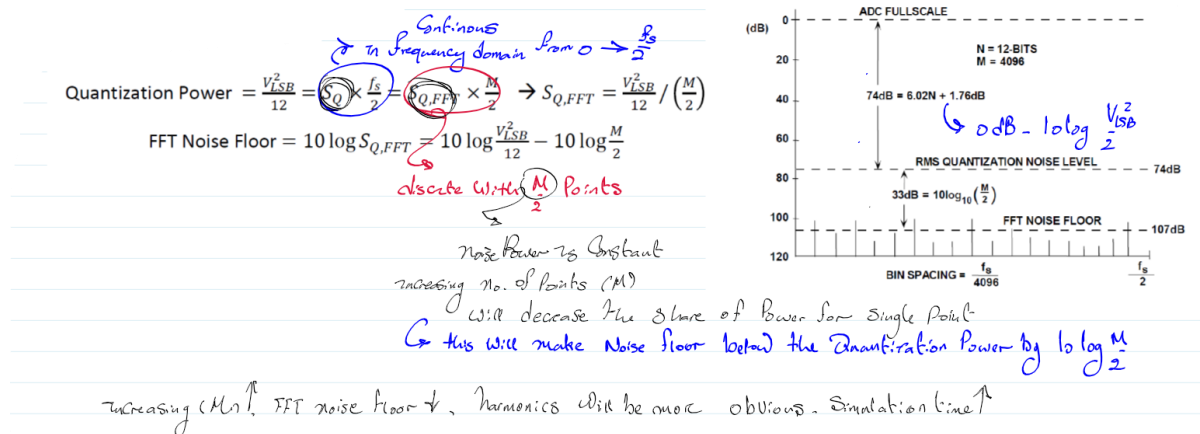 Continous
in frequency domain from 0 → fs/2
Quantization Power = V²LSB/12 = SQ × fs/2 = SQ,FFT × M/2 → SQ,FFT = V²LSB/12 / (M/2)
FFT Noise Floor = 10 log SQ,FFT = 10 log V²LSB/12 − 10 log M/2
discrete with M/2 Points
noise Power is Constant
increasing no. of Points (M)
will decrease the share of Power for single point
this will make Noise floor below the Quantization Power by 10 log M/2
increasing (M) ↑, FFT noise floor ↓, harmonics will be more obvious. Simulation time ↑
ADC FULLSCALE
(dB)
0
20
40
60
80
100
120
N = 12-BITS
M = 4096
74dB = 6.02N + 1.76dB
0 dB - 10 log V²LSB/2
RMS QUANTIZATION NOISE LEVEL
74dB
33dB = 10log10(M/2)
FFT NOISE FLOOR
107dB
BIN SPACING = fs/4096
fs/2